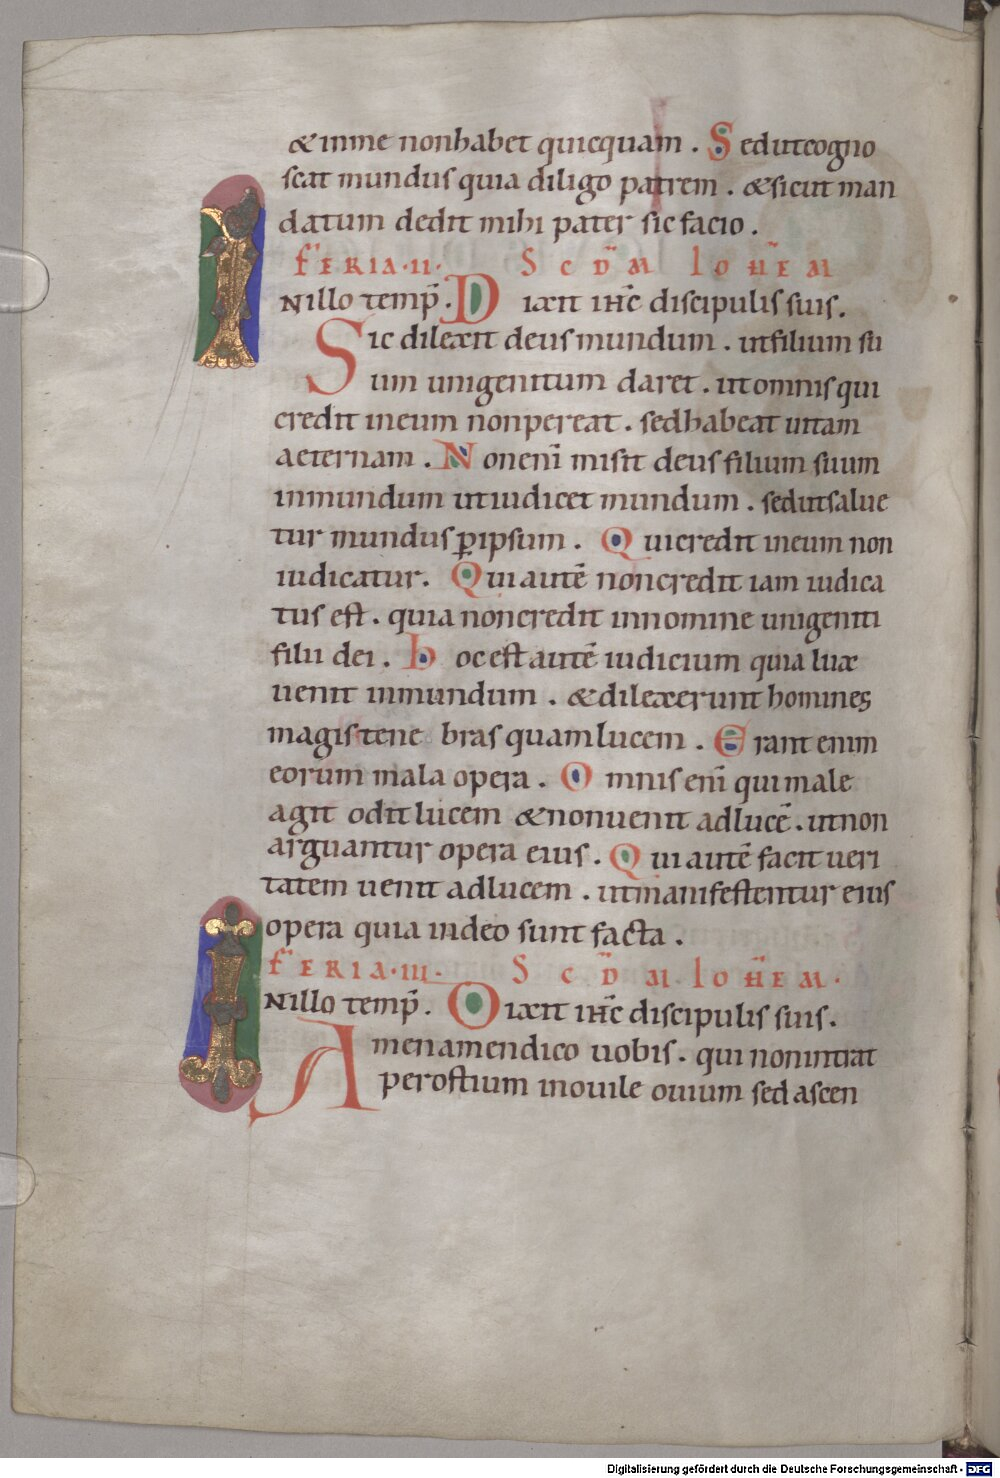 & in me non habet quicquam . Sed ut cogno
scat mundus quia diligo patrem . & sicut man
datum dedit mihi pater sic facio .
FERIA·II· SCD̄M IOH̄EM
INillo temp̄ . Dixit ih̄c discipulis suis.
Sic dilexit deus mundum . ut filium su
um unigenitum daret . ut omnis qui
credit in eum non pereat . sed habeat uitam
aeternam . Non enī misit deus filium suum
in mundum ut iudicet mundum . sed ut salue
tur mundus ꝑ ipsum . Qui credit in eum non
iudicatur. Qui autē non credit iam iudica
tus est . quia non credit in nomine unigeniti
filii dei . hoc est autē iudicium quia lux
uenit in mundum . & dilexerunt homines
magis tene bras quam lucem . Erant enim
eorum mala opera . Omnis enī qui male
agit odit lucem & non uenit ad lucē . ut non
arguantur opera eius . Qui autē facit ueri
tatem uenit ad lucem . ut manifestentur eius
opera quia in deo sunt facta .
FERIA·III· SCD̄M IOH̄EM·
INillo temp̄ . Dixit ih̄c discipulis suis.
Amen amen dico uobis . qui non intrat
per ostium in ouile ouium sed ascen
Digitalisierung gefördert durch die Deutsche Forschungsgemeinschaft - DFG